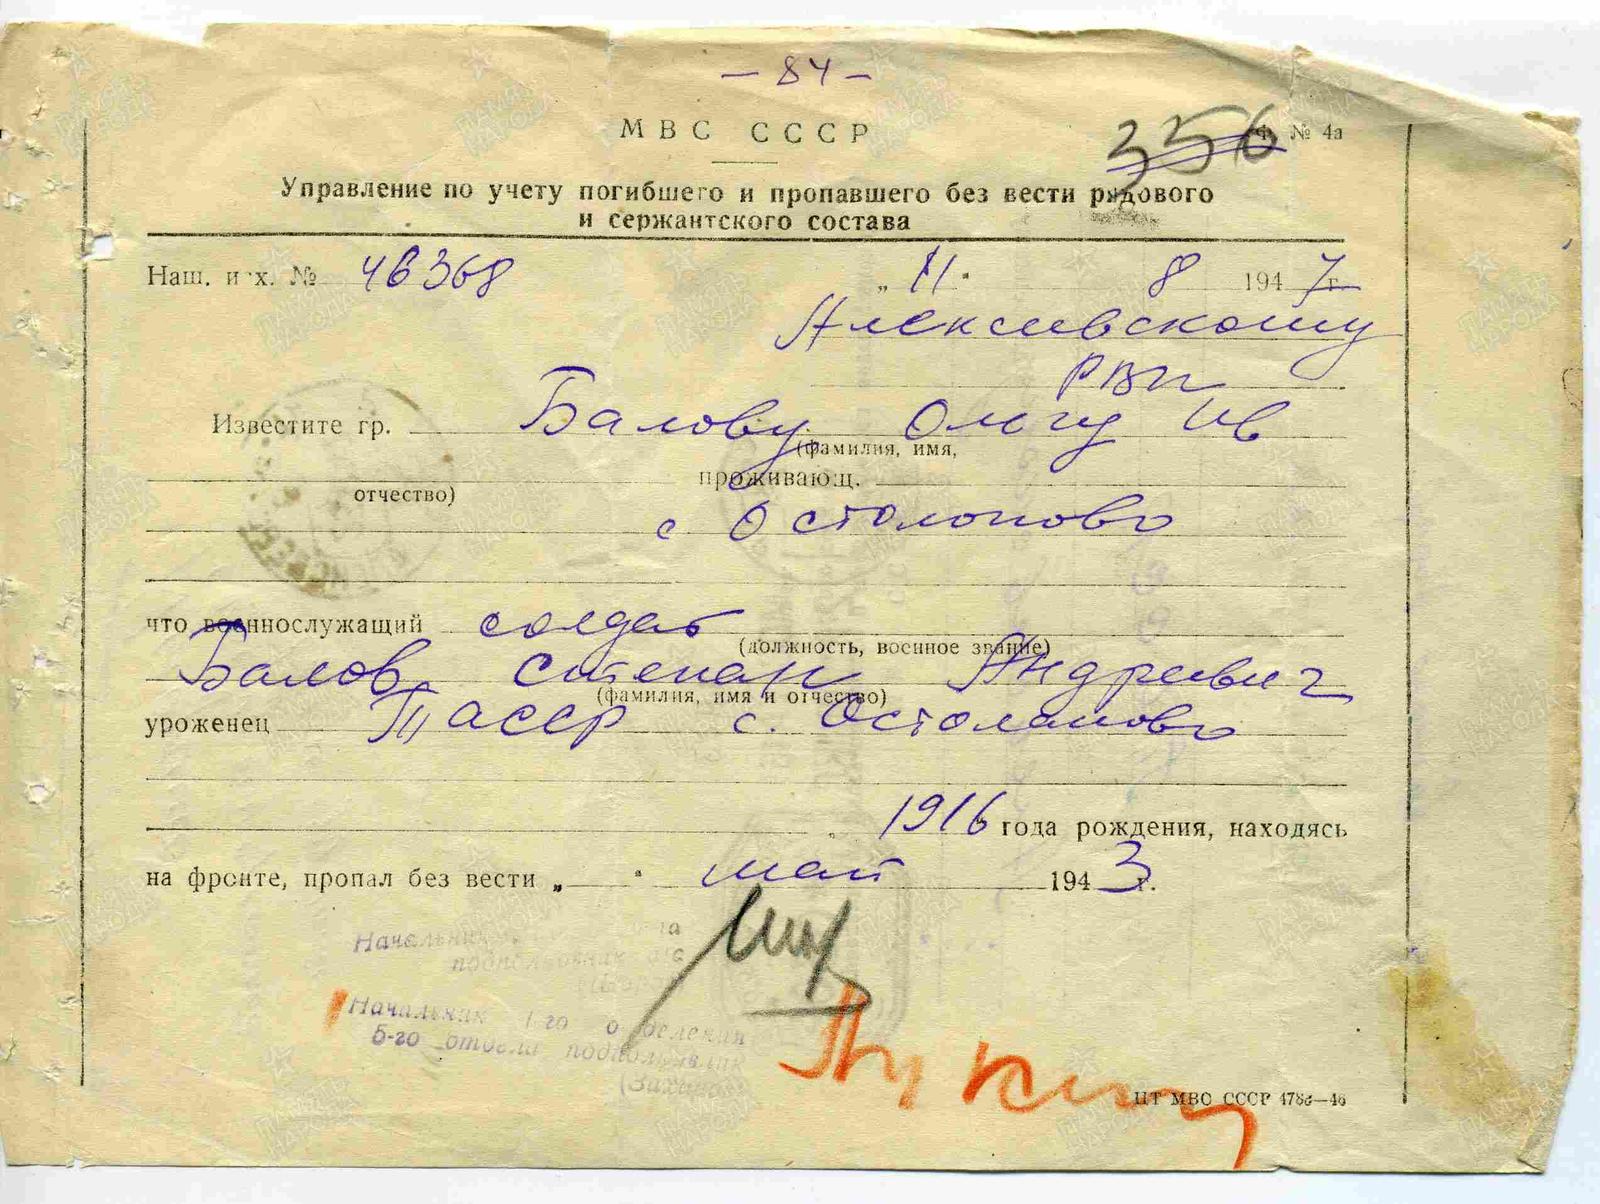 — 84 —
МВС СССР
356
Ф № 4а
Управление по учету погибшего и пропавшего без вести рядового
и сержантского состава
Наш. исх. № 46368 „ 11 " 8 1947 г.
Алексеевскому
РВК
Известите гр. Балову Ольгу Ив
(фамилия, имя,
проживающ.
отчество)
с Остолопово
что военнослужащий солдат
(должность, военное звание)
Балов Степан Андреевич
(фамилия, имя и отчество)
уроженец ТАССР с. Остолопово
1916 года рождения, находясь
на фронте, пропал без вести „ " май 1943 г.
Начальник
подполковник а/с
Начальник 1-го отделения
5-го отдела подполковник
ЦТ МВС СССР 478с—46
ПАМЯТЬ НАРОДА